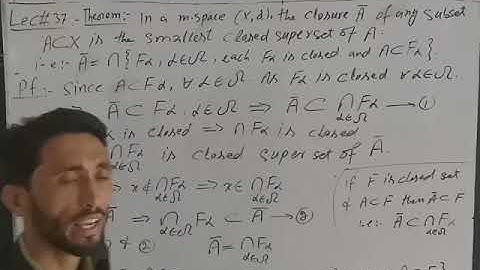 Lec#37. Theorem:- In a m.space (X,d), the closure Ā of any subset
A⊂X is the smallest closed superset of A.
i-e:- Ā = ∩{Fα, α∈Ω, each Fα is closed and A⊂Fα}.
Pf:- Since A⊂Fα, ∀ α∈Ω As Fα is closed ∀α∈Ω.
Ā⊂Fα, α∈Ω ⇒ Ā⊂ ∩Fα —① α∈Ω
α is closed ⇒ ∩Fα is closed
∩Fα is closed superset of Ā. α∈Ω
⇒ x∉∩Fα ⇒ x∈∩Fα α∈Ω
Ā ⇒ ∩Fα ⊂ Ā —② α∈Ω
& ② Ā = ∩Fα α∈Ω
if F is closed set
& A⊂F then Ā⊂F
i-e:- Ā⊂∩Fα α∈Ω